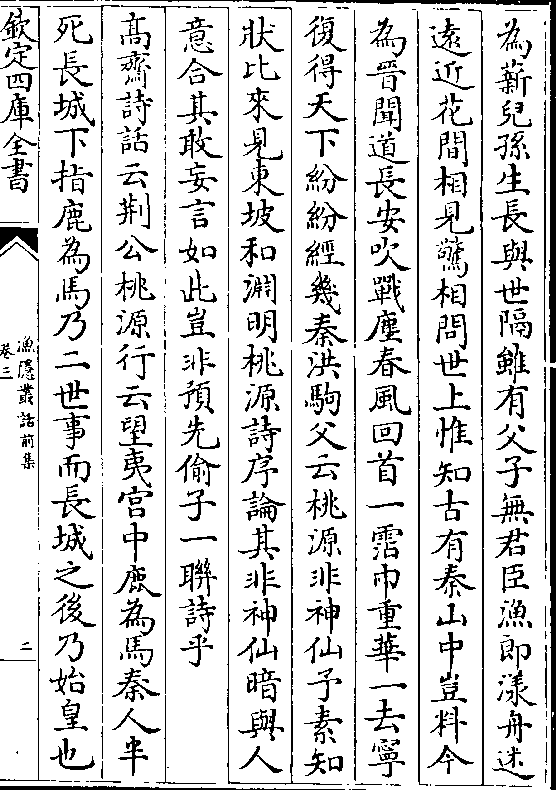 為薪兒孫生長與世隔雖有父子無君臣漁郎漾舟迷
遠近花間相見驚相問世上惟知古有秦山中豈料今
為晉聞道長安吹戰塵春風回首一霑巾重華一去寧
復得天下紛紛經幾秦洪駒父云桃源非神仙予素知
狀比來見東坡和淵明桃源詩序論其非神仙暗與人
意合其敢妄言如此豈非預先偷子一聯詩乎
髙齋詩話云荆公桃源行云望夷宫中鹿為馬秦人半
死長城下指鹿為馬乃二世事而長城之後乃始皇也
欽定四庫全書
漁隱叢話前集
卷三
二